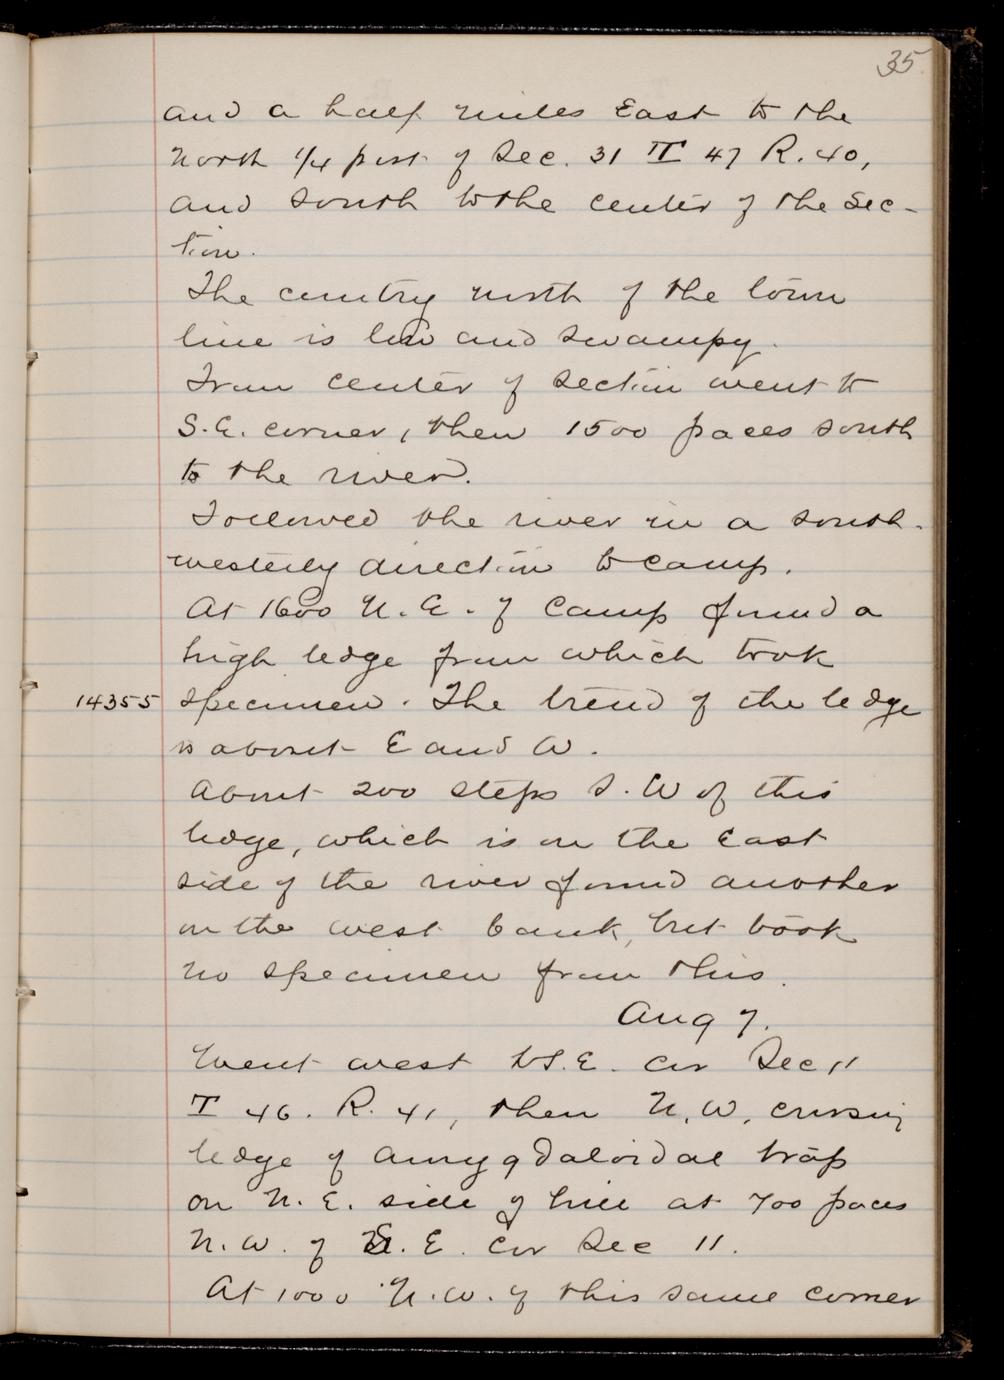 35
and a half miles East to the
North 1/4 post of Sec. 31 T 47 R. 40,
and south to the center of the Sec-
tion.
The country north of the town
line is low and swampy.
From center of section went to
S.E. corner, then 1500 paces south
to the river.
Followed the river in a south-
westerly direction to camp.
At 1600 N.E. of Camp found a
high ledge from which took
14355 specimen. The trend of the ledge
is about E and W.
About 200 steps S.W of this
ledge, which is on the East
side of the river found another
on the west bank, but took
no specimen from this.
Aug 7.
Went west to S.E. Cor Sec 11
T 46. R. 41, then N.W. crossing
ledge of amygdaloidal trap
on N.E. side of hill at 700 paces
N.W. of S.E. Cor Sec 11.
At 1000 N.W. of this same corner